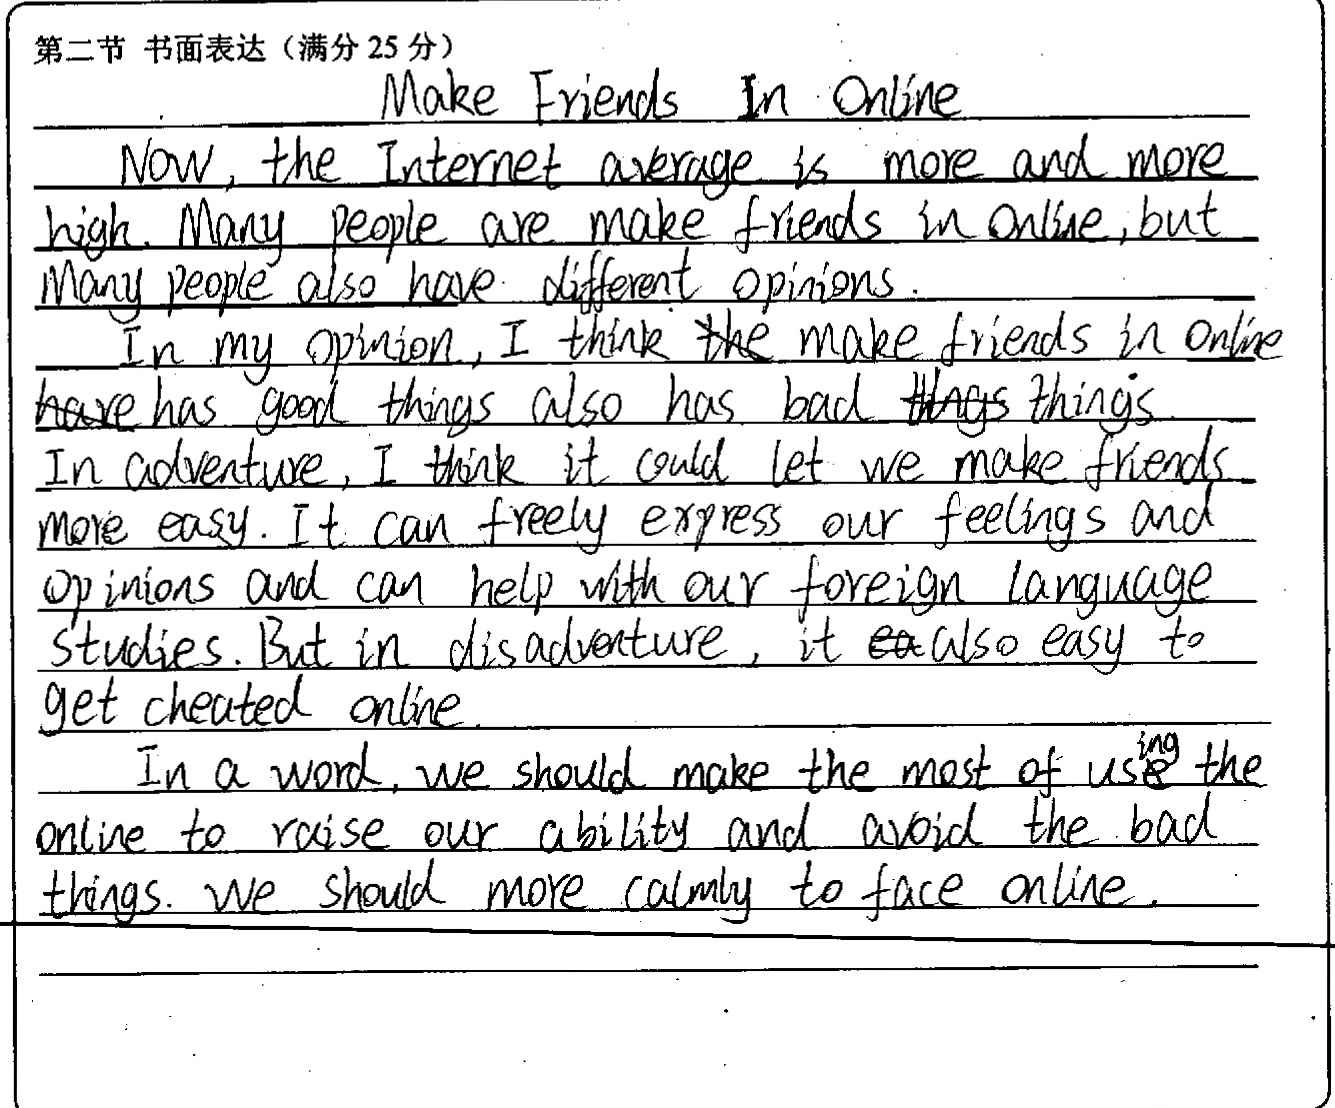 第二节 书面表达（满分 25 分）
Make Friends In Online
Now, the Internet average is more and more
high. Many people are make friends in Online, but
Many people also have different opinions.
In my opinion, I think the make friends in Online
have has good things also has bad things things.
In adventure, I think it could let we make friends
more easy. It can freely express our feelings and
opinions and can help with our foreign language
studies. But in disadventure, it ea also easy to
get cheated online.
In a word, we should make the most of using the
online to raise our ability and avoid the bad
things. We should more calmly to face online.